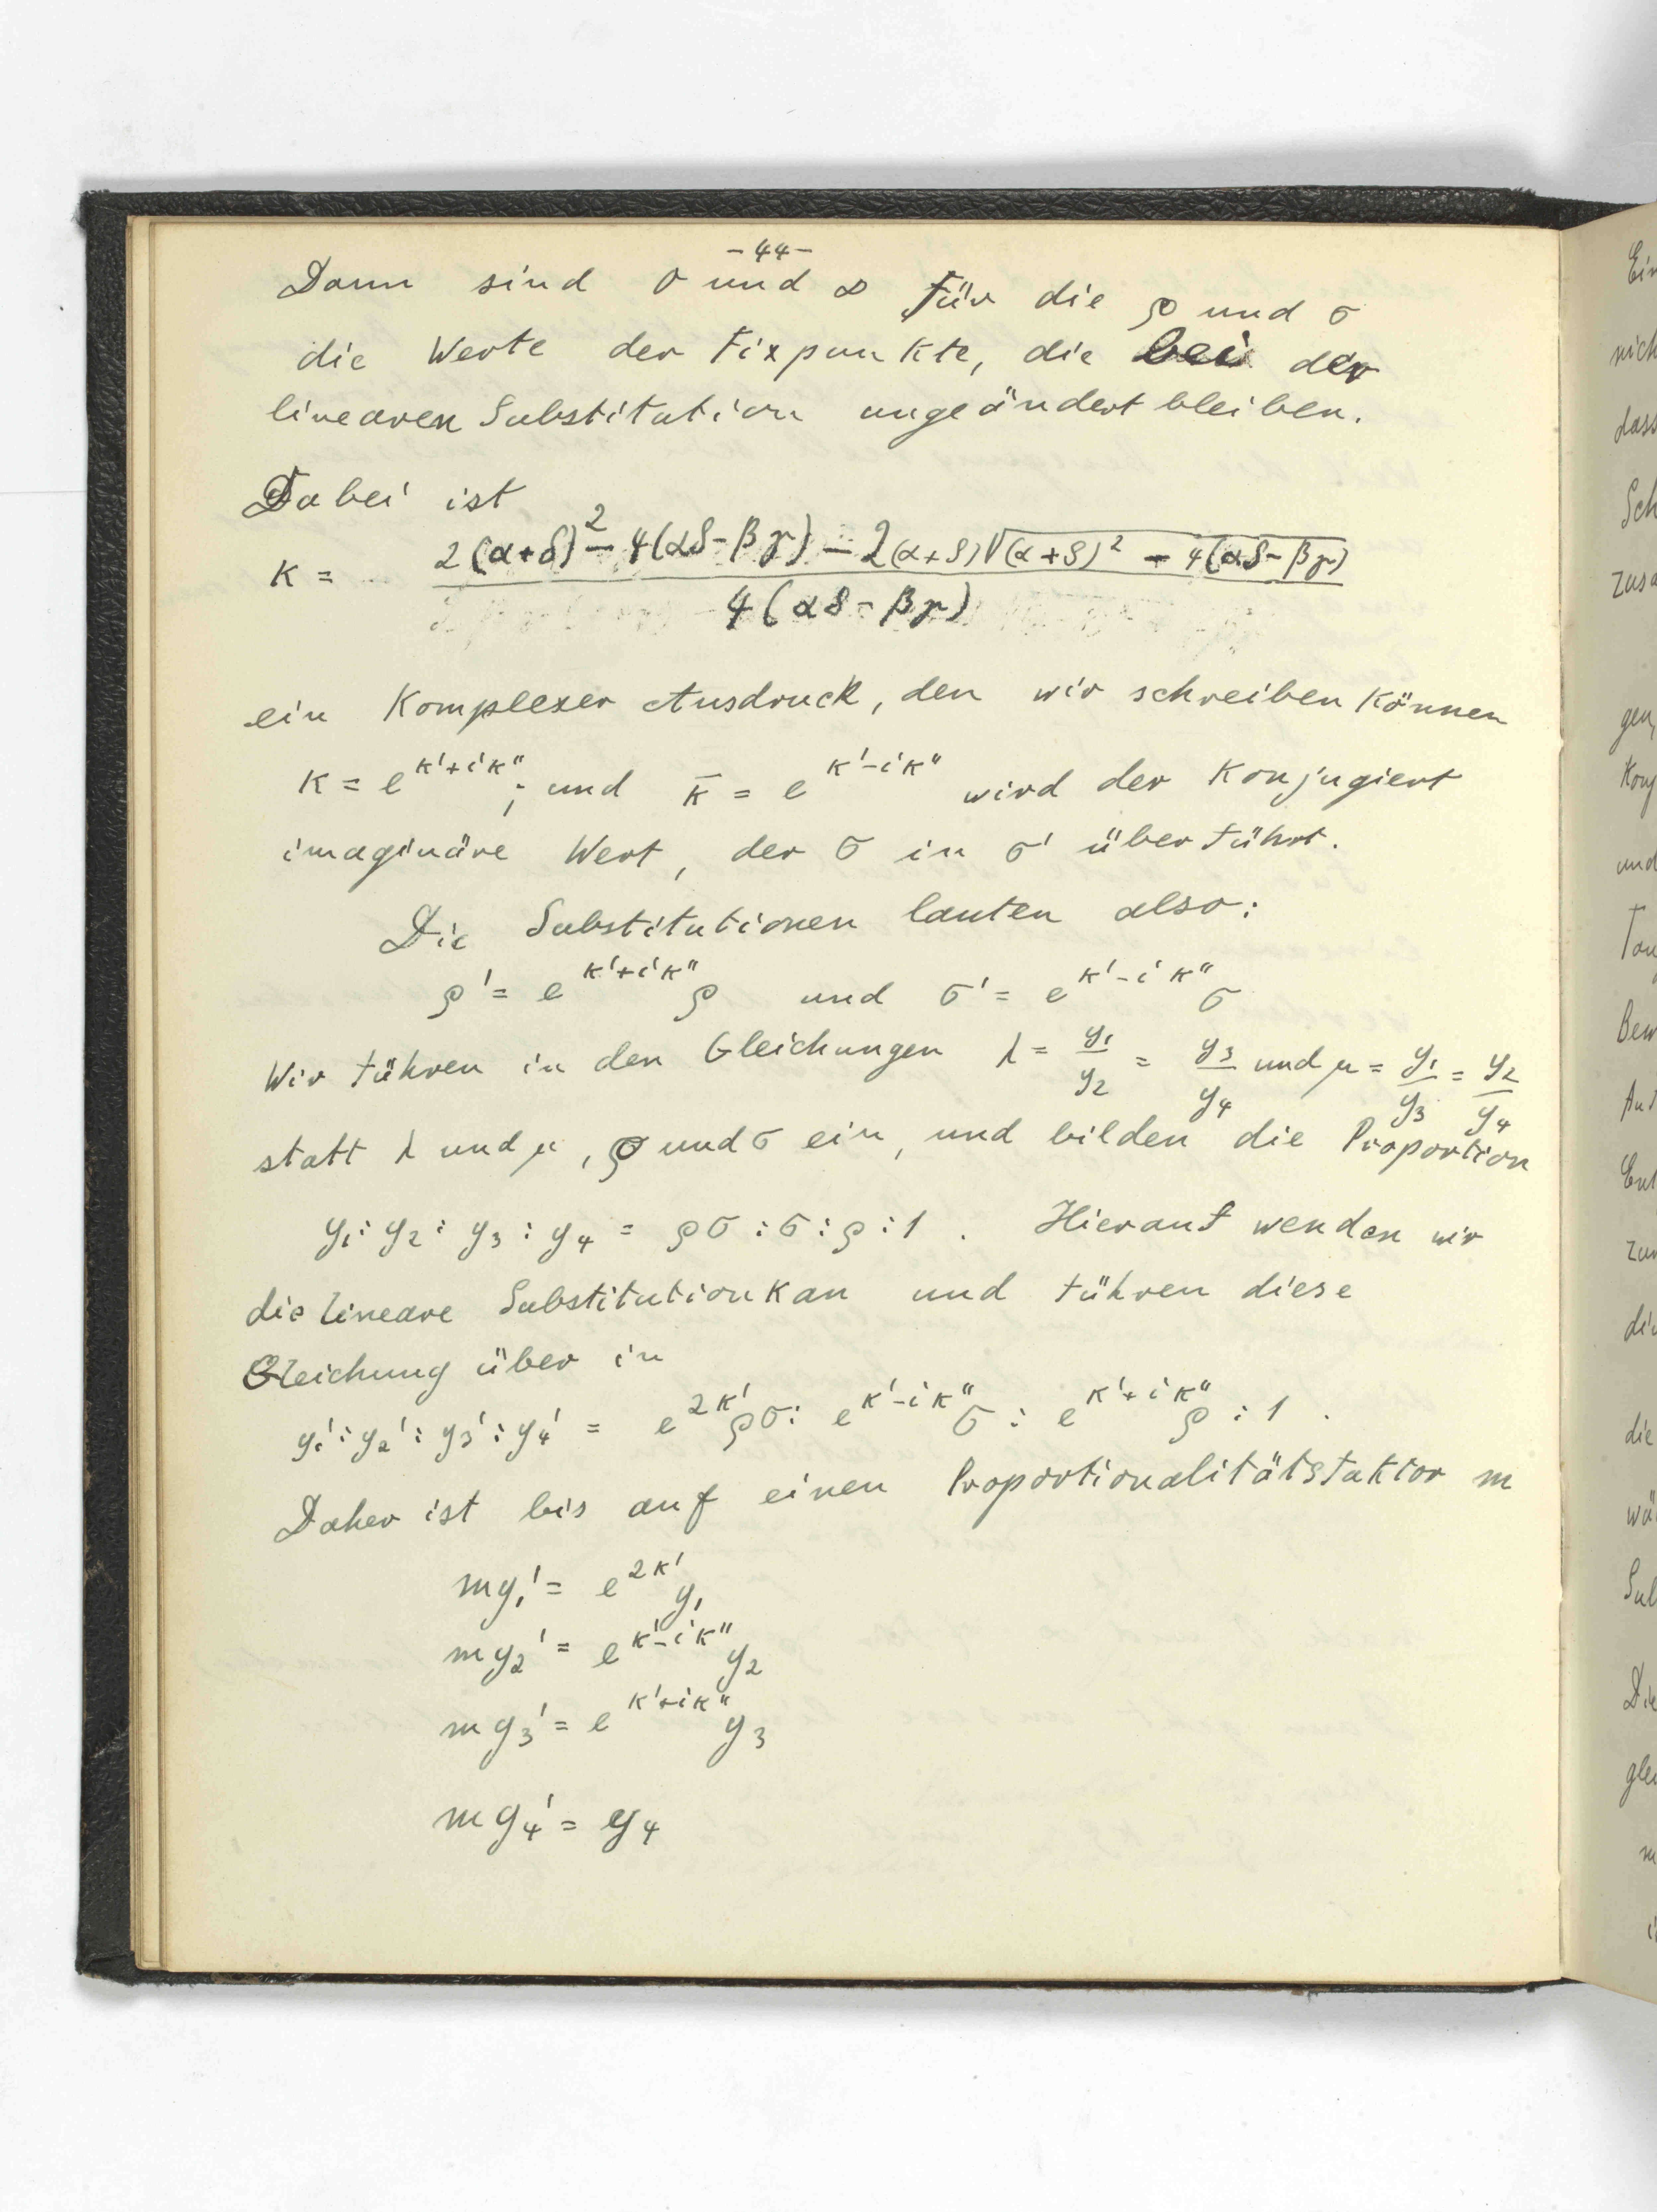 -44-
Dann sind 0 und ∞ für die ρ und σ
die Werte der Fixpunkte, die bei der
linearen Substitution ungeändert bleiben.
Dabei ist
K = 2(α+δ)² - 4(αδ-βγ) - 2(α+δ)√(α+δ)² - 4(αδ-βγ)
4(αδ-βγ)
ein Komplexer Ausdruck, den wir schreiben Können
K = e^{K'+iK''}; und K̄ = e^{K'-iK''} wird der Konjugiert
imaginäre Wert, der σ in σ' überführt.
Die Substitutionen lauten also:
ρ' = e^{K'+iK''} ρ und σ' = e^{K'-iK''} σ
Wir führen in den Gleichungen λ = y₁/y₂ = y₃/y₄ und μ = y₁/y₃ = y₂/y₄
statt λ und μ, ρ und σ ein, und bilden die Proportion
y₁ : y₂ : y₃ : y₄ = ρσ : σ : ρ : 1. Hierauf wenden wir
die lineare Substitution K an und führen diese
Gleichung über in
y₁' : y₂' : y₃' : y₄' = e^{2K'} ρσ : e^{K'-iK''} σ : e^{K'+iK''} ρ : 1.
Daher ist bis auf einen Proportionalitätsfaktor m
my₁' = e^{2K'} y₁
my₂' = e^{K'-iK''} y₂
my₃' = e^{K'+iK''} y₃
my₄' = y₄